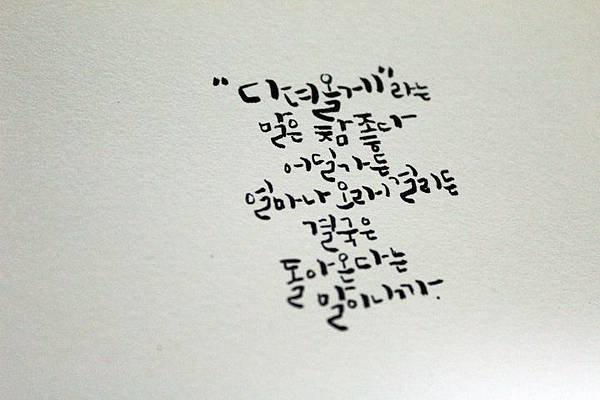 "다녀올게"라는
말은 참 좋다
어딜가든
얼마나 오래 걸리든
결국은
돌아온다는
말이니까.